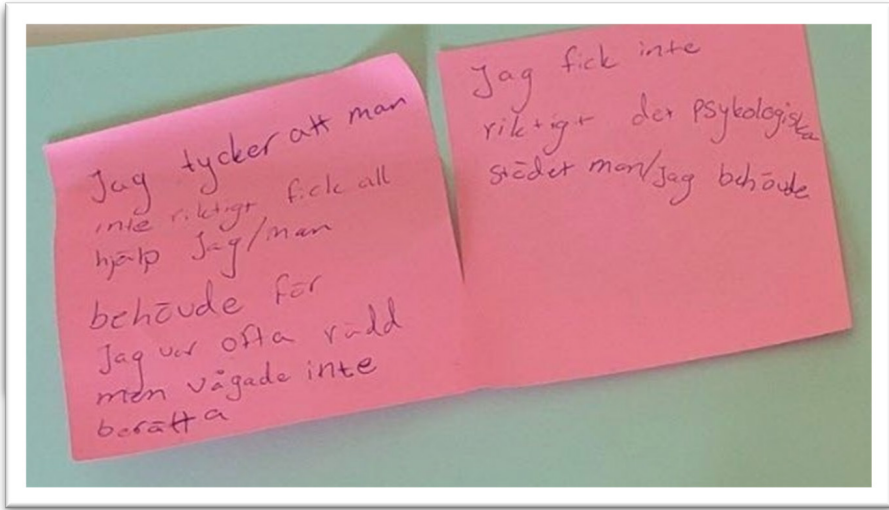 Jag tycker att man
inte riktigt fick all
hjälp Jag/man
behövde för
Jag var ofta rädd
men vågade inte
berätta
Jag fick inte
riktigt det psykologiska
stödet man/jag behövde